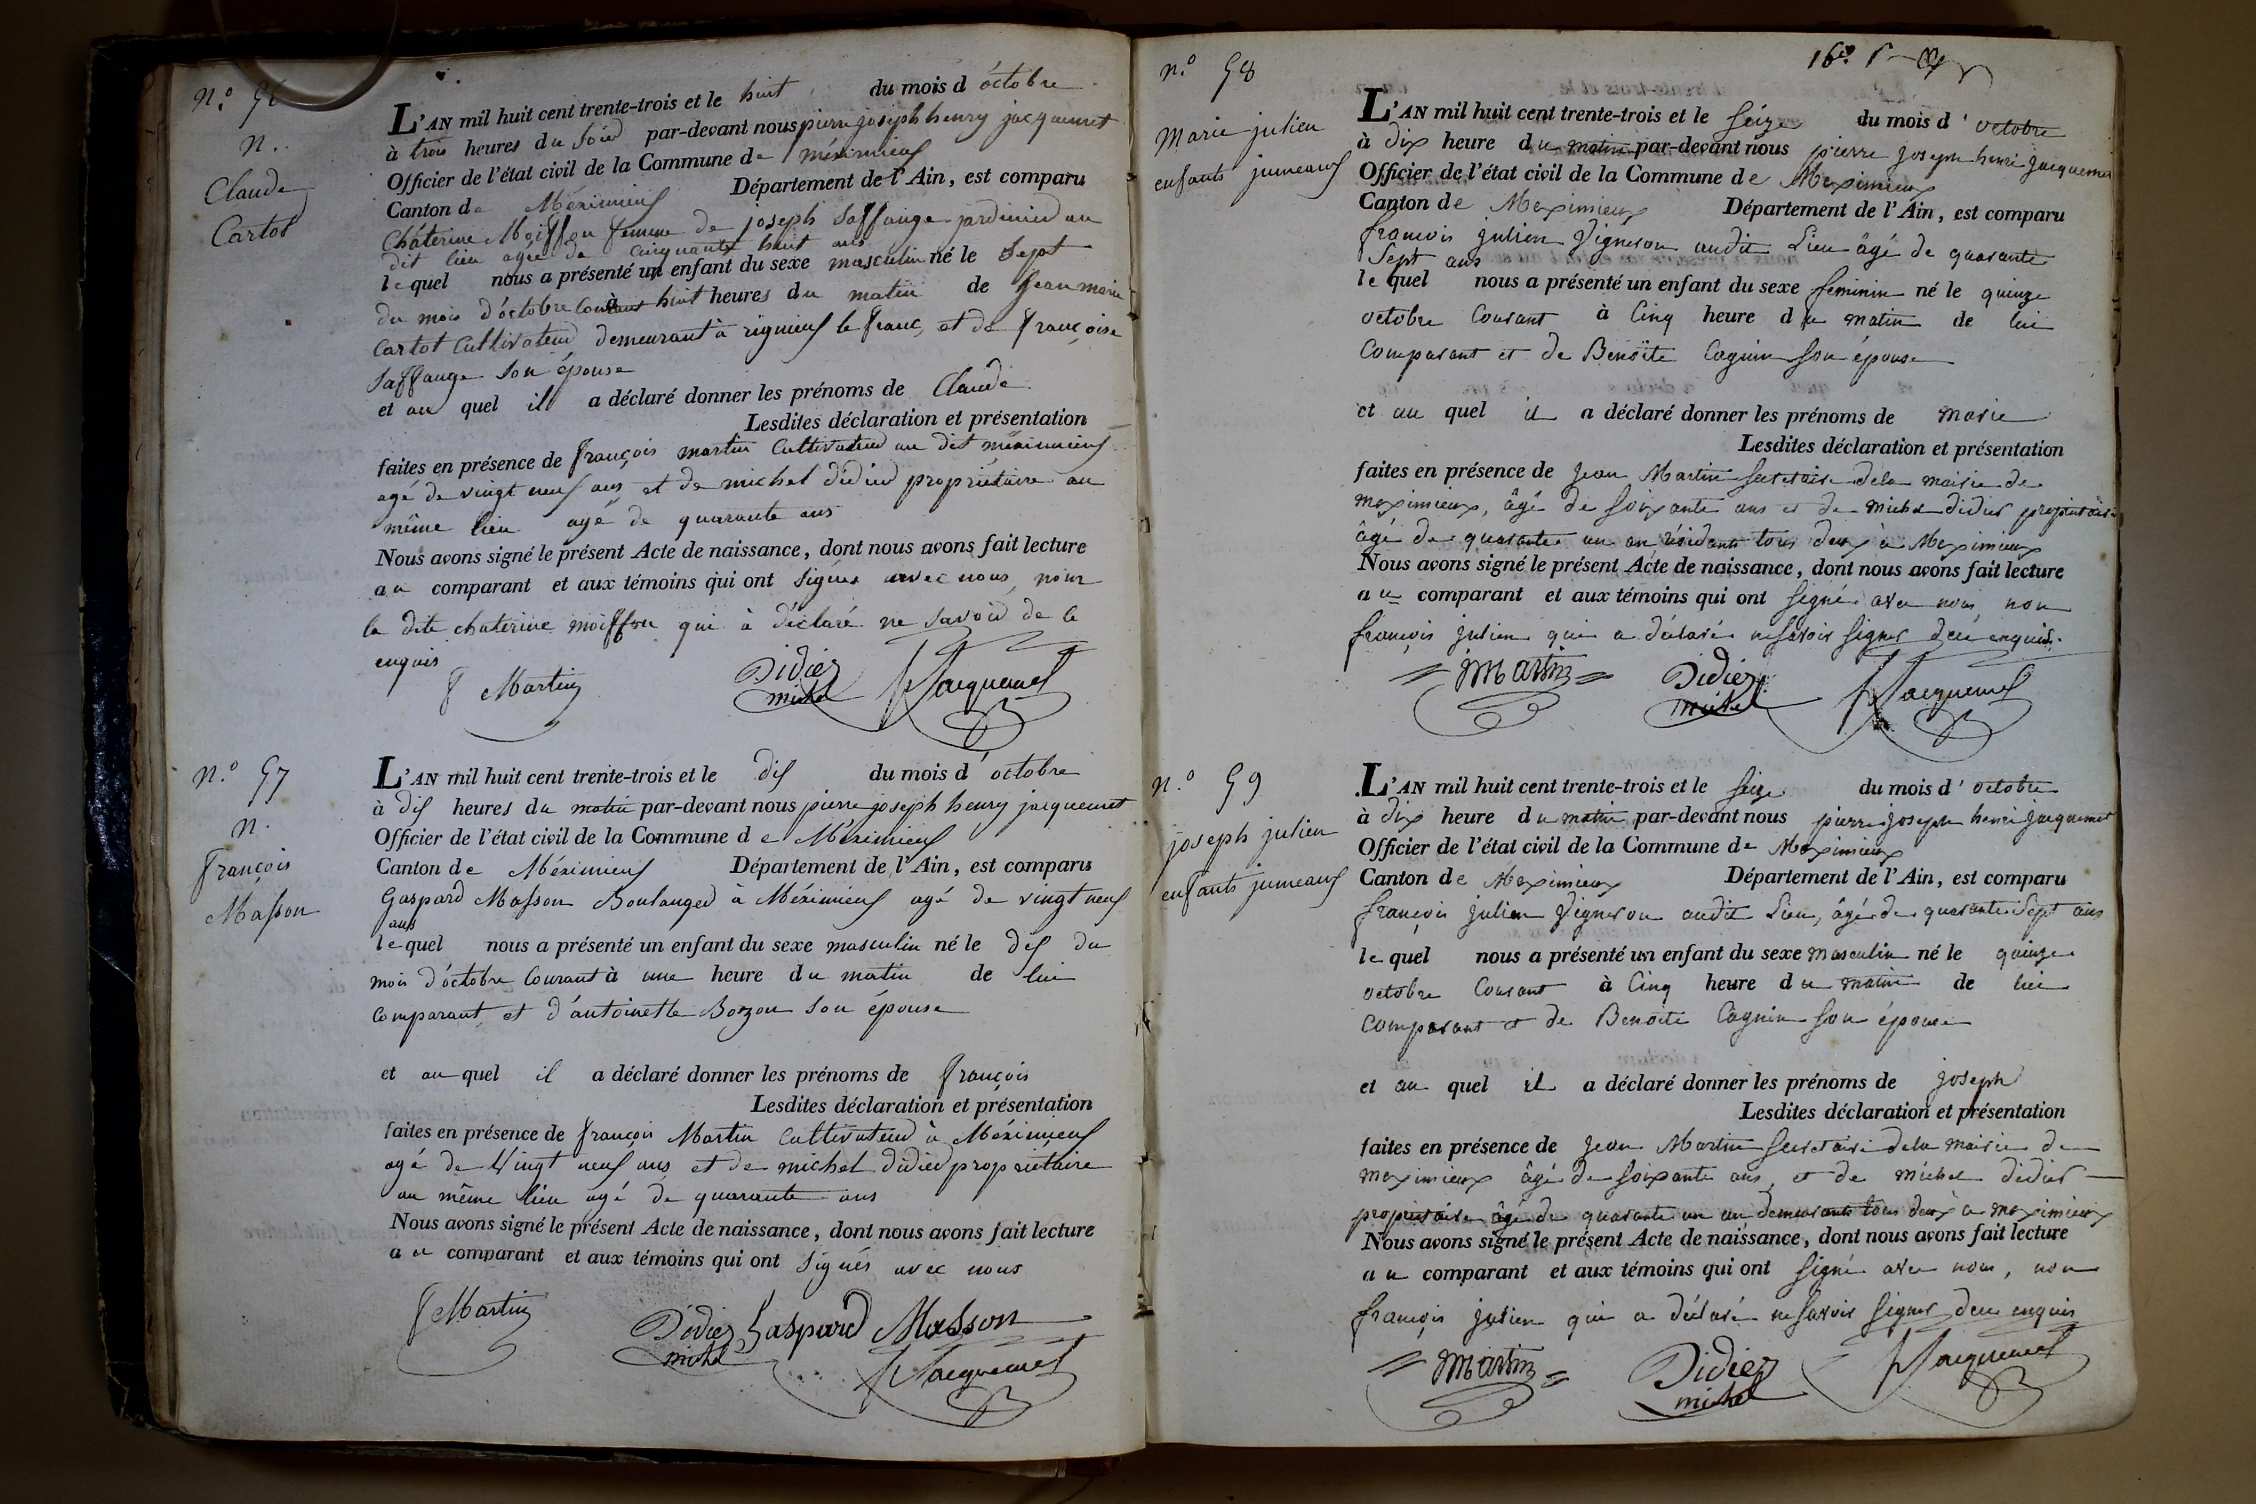 N.° 56
n.
Claude
Cartot
L'AN mil huit cent trente-trois et le huit du mois d'octobre
à trois heures du soir par-devant nous pierre joseph henry jacquemet
Officier de l'état civil de la Commune de méximieux
Canton de Méximieux Département de l'Ain, est comparu
Chaterine Moiffon femme de joseph Saffange jardinier au
dit lieu agée de cinquante huit ans
lequel nous a présenté un enfant du sexe masculin né le Sept
du mois d'octobre courant à huit heures du matin de jean marie
Cartot Cultivateur demeurant à rignieux le franc, et de françoise
Saffange son épouse
et au quel il a déclaré donner les prénoms de Claude
Lesdites déclaration et présentation
faites en présence de françois martin Cultivateur au dit méximieux
agé de vingt neuf ans et de michel didier propriétaire au
même lieu agé de quarante ans
Nous avons signé le présent Acte de naissance, dont nous avons fait lecture
au comparant et aux témoins qui ont signés avec nous, non
la dite chaterine moiffon qui à déclaré ne savoir de ce
enquis
f Martin Didier michel Jacquemet
N.° 57
n.
françois
Masson
L'AN mil huit cent trente-trois et le dix du mois d'octobre
à dix heures du matin par-devant nous pierre joseph henry jacquemet
Officier de l'état civil de la Commune de Méximieux
Canton de Méximieux Département de l'Ain, est comparu
Gaspard Masson Boulanger à Méximieux agé de vingt neuf
ans
lequel nous a présenté un enfant du sexe masculin né le dix du
mois d'octobre courant à une heure du matin de lui
comparant, et d'antoinette Bozon son épouse
et au quel il a déclaré donner les prénoms de françois
Lesdites déclaration et présentation
faites en présence de françois Martin cultivateur à Méximieux
agé de vingt neuf ans et de michel didier propriétaire
au même lieu agé de quarante ans
Nous avons signé le présent Acte de naissance, dont nous avons fait lecture
au comparant et aux témoins qui ont signés avec nous
f Martin Didier michel Gaspard Masson
Jacquemet
16.e
n.° 58
Marie julien
enfants jumeaux
L'AN mil huit cent trente-trois et le seize du mois d'octobre
à dix heure du matin par-devant nous pierre joseph henri jacquemet
Officier de l'état civil de la Commune de Meximieux
Canton de Meximieux Département de l'Ain, est comparu
françois julien Vigneron audit Lieu âgé de quarante
Sept ans
lequel nous a présenté un enfant du sexe feminin né le quinze
octobre courant à Cinq heure du matin de lui
comparant et de Benoîte Cagnin son épouse
et au quel il a déclaré donner les prénoms de marie
Lesdites déclaration et présentation
faites en présence de jean Martin secretaire de la mairie de
meximieux, âgé de soixante ans et de michel didier propriétaire
âgé de quarante un an résidants tous deux à Meximieux
Nous avons signé le présent Acte de naissance, dont nous avons fait lecture
au comparant et aux témoins qui ont signé avec nous non
françois julien qui a déclaré ne savoir signer de ce enquis.
jMartin Didier michel Jacquemet
n.° 59
joseph julien
enfants jumeaux
L'AN mil huit cent trente-trois et le seize du mois d'octobre
à dix heure du matin par-devant nous pierre joseph henri jacquemet
Officier de l'état civil de la Commune de Meximieux
Canton de Meximieux Département de l'Ain, est comparu
françois julien Vigneron audit Lieu, âgé de quarante Sept ans
lequel nous a présenté un enfant du sexe masculin né le quinze
octobre courant à Cinq heure du matin de lui
comparant et de Benoîte Cagnin son épouse
et au quel il a déclaré donner les prénoms de joseph
Lesdites déclaration et présentation
faites en présence de jean Martin secretaire de la mairie de
meximieux âgé de soixante ans, et de michel didier
propriétaire âgé de quarante un an demeurants tous deux à meximieux
Nous avons signé le présent Acte de naissance, dont nous avons fait lecture
au comparant et aux témoins qui ont signé avec nous, non
françois julien qui a déclaré ne savoir signer de ce enquis
jMartin Didier michel Jacquemet